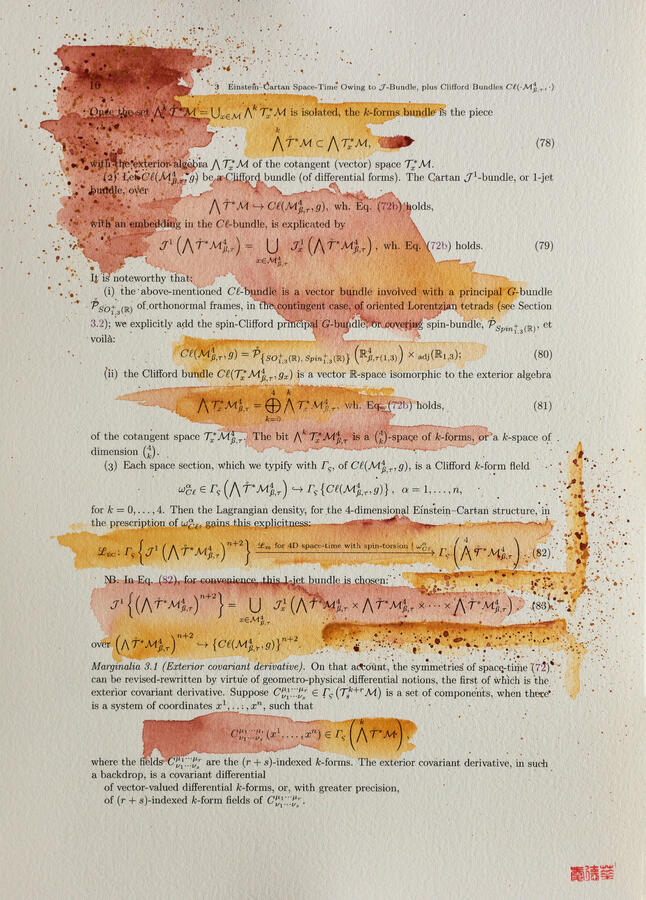 10 3 Einstein–Cartan Space-Time Owing to 𝒥-Bundle, plus Clifford Bundles Cℓ(·ℳ⁴_{β,τ}, ·)
Once the set ⋀ᵏ 𝒯*ℳ = ⋃_{x∈ℳ} ⋀ᵏ 𝒯ₓ*ℳ is isolated, the k-forms bundle is the piece
⋀ᵏ 𝒯̇*ℳ ⊂ ⋀ 𝒯ₓ*ℳ, (78)
with the exterior algebra ⋀ 𝒯ₓ*ℳ of the cotangent (vector) space 𝒯ₓ*ℳ.
(2) Let Cℓ(ℳ⁴_{β,τ}, g) be a Clifford bundle (of differential forms). The Cartan 𝒥¹-bundle, or 1-jet
bundle, over
⋀ 𝒯̇*ℳ ↪ Cℓ(ℳ⁴_{β,τ}, g), wh. Eq. (72b) holds,
with an embedding in the Cℓ-bundle, is explicated by
𝒥¹ (⋀ 𝒯̇*ℳ⁴_{β,τ}) = ⋃_{x∈ℳ⁴_{β,τ}} 𝒥ₓ¹ (⋀ 𝒯̇*ℳ⁴_{β,τ}), wh. Eq. (72b) holds. (79)
It is noteworthy that:
(i) the above-mentioned Cℓ-bundle is a vector bundle involved with a principal G-bundle
𝒫̊_{SO⁺_{1,3}(ℝ)} of orthonormal frames, in the contingent case, of oriented Lorentzian tetrads (see Section
3.2); we explicitly add the spin-Clifford principal G-bundle, or covering spin-bundle, 𝒫̊_{Spin⁺_{1,3}(ℝ)}, et
voilà:
Cℓ(ℳ⁴_{β,τ}, g) = 𝒫̊_{{SO⁺_{1,3}(ℝ), Spin⁺_{1,3}(ℝ)}} (ℝ⁴_{β,τ(1,3)}) ×_{adj}(ℝ_{1,3}); (80)
(ii) the Clifford bundle Cℓ(𝒯ₓ*ℳ⁴_{β,τ}, gₓ) is a vector ℝ-space isomorphic to the exterior algebra
⋀ 𝒯ₓ*ℳ⁴_{β,τ} = ⊕⁴_{k=0} ⋀ᵏ 𝒯ₓ*ℳ⁴_{β,τ}, wh. Eq. (72b) holds, (81)
of the cotangent space 𝒯ₓ*ℳ⁴_{β,τ}. The bit ⋀ᵏ 𝒯ₓ*ℳ⁴_{β,τ} is a (⁴ₖ)-space of k-forms, or a k-space of
dimension (⁴ₖ).
(3) Each space section, which we typify with Γ_ς, of Cℓ(ℳ⁴_{β,τ}, g), is a Clifford k-form field
ω^α_{Cℓ} ∈ Γ_ς (⋀ 𝒯̇*ℳ⁴_{β,τ}) ↪ Γ_ς {Cℓ(ℳ⁴_{β,τ}, g)}, α = 1, . . . , n,
for k = 0, . . . , 4. Then the Lagrangian density, for the 4-dimensional Einstein–Cartan structure, in
the prescription of ω^α_{Cℓ}, gains this explicitness:
: Γ_ς {𝒥¹ (⋀ 𝒯̇*ℳ⁴_{β,τ})ⁿ⁺²} ℒₘ for 4D space-time with spin-torsion | ω^α_{Cℓ} → Γ_ς (⋀⁴ 𝒯̇*ℳ⁴_{β,τ}). (82)
NB. In Eq. (82), for convenience, this 1-jet bundle is chosen:
𝒥¹ {(⋀ 𝒯̇*ℳ⁴_{β,τ})ⁿ⁺²} = ⋃_{x∈ℳ⁴_{β,τ}} 𝒥ₓ¹ (⋀ 𝒯̇*ℳ⁴_{β,τ} × ⋀ 𝒯̇*ℳ⁴_{β,τ} × · · · × ⋀ 𝒯̇*ℳ⁴_{β,τ}) (83)
over (⋀ 𝒯̇*ℳ⁴_{β,τ})ⁿ⁺² ↪ {Cℓ(ℳ⁴_{β,τ}, g)}ⁿ⁺²
Marginalia 3.1 (Exterior covariant derivative). On that account, the symmetries of space-time (72)
can be revised-rewritten by virtue of geometro-physical differential notions, the first of which is the
exterior covariant derivative. Suppose C^{μ₁···μᵣ}_{ν₁···νₛ} ∈ Γ_ς(𝒯ₛᵏ⁺ʳℳ) is a set of components, when there
is a system of coordinates x¹, . . . , xⁿ, such that
C^{μ₁···μᵣ}_{ν₁···νₛ}(x¹, . . . , xⁿ) ∈ Γ_ς (⋀ᵏ 𝒯̇*ℳ),
where the fields C^{μ₁···μᵣ}_{ν₁···νₛ} are the (r + s)-indexed k-forms. The exterior covariant derivative, in such
a backdrop, is a covariant differential
of vector-valued differential k-forms, or, with greater precision,
of (r + s)-indexed k-form fields of C^{μ₁···μᵣ}_{ν₁···νₛ}.